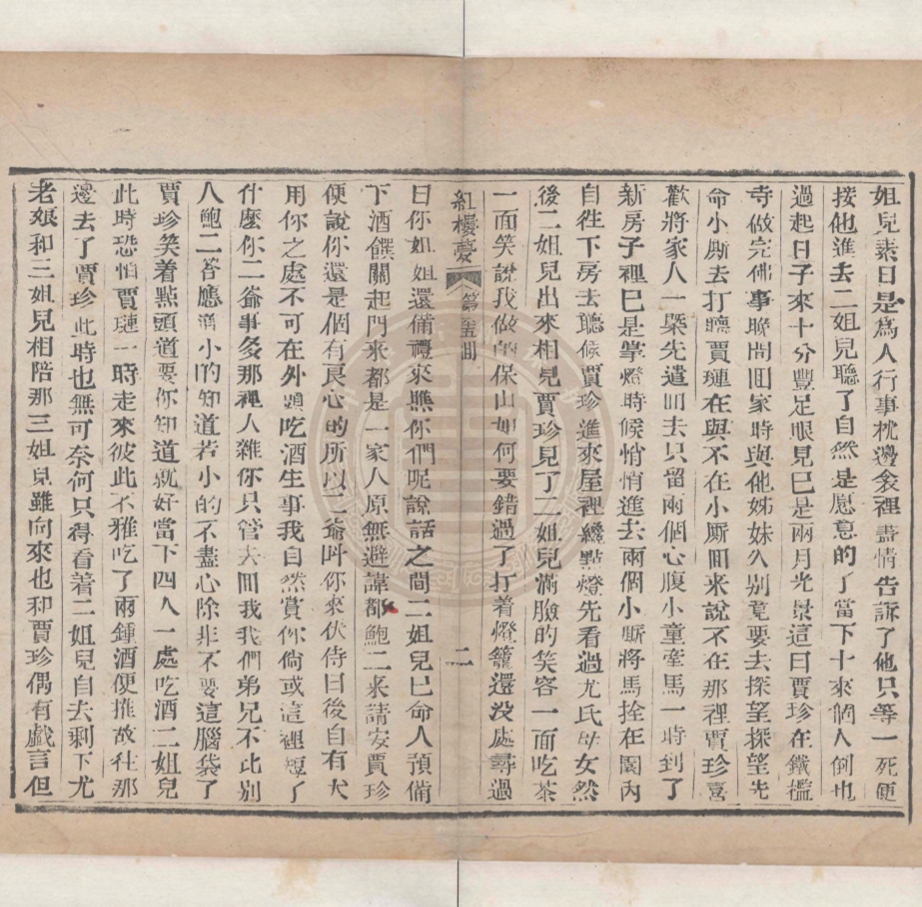 姐兒素日是爲人行事枕邊衾裡盡情告訴了他只等一死便
接他進去二姐兒聽了自然是愿意的了當下十來個人倒也
過起日子來十分豐足眼見已是兩月光景這日賈珍在鐵檻
寺做完佛事晚間囘家時與他姊妹久别竟要去探望探望先
命小厮去打聽賈璉在與不在小厮囘來說不在那裡賈珍喜
歡將家人一槩先遣囘去只留兩個心腹小童牽馬一時到了
新房子裡已是掌燈時候悄悄進去兩個小厮將馬拴在圈內
自徃下房去聽候賈珍進來屋裡纔點燈先看過尤氏母女然
後二姐兒出來相見賈珍見了二姐兒滿臉的笑容一面吃茶
一面笑說我做的保山如何要錯過了打着燈籠還没處尋過
紅樓夢 第 囘 二
日你姐姐還備禮來瞧你們呢說話之間二姐兒已命人預備
下酒饌關起門來都是一家人原無避諱那鮑二來請安賈珍
便說你還是個有良心的所以二爺呌你來伏侍日後自有大
用你之處不可在外頭吃酒生事我自然賞你倘或這裡短了
什麼你二爺事多那裡人雜你只管去囘我我們弟兄不比别
人鮑二答應道小的知道若小的不盡心除非不要這腦袋了
賈珍笑着點頭道要你知道就好當下四人一處吃酒二姐兒
此時恐怕賈璉一時走來彼此不雅吃了兩鍾酒便推故往那
邊去了賈珍此時也無可奈何只得看着二姐兒自去剩下尤
老娘和三姐兒相陪那三姐兒雖向來也和賈珍偶有戲言但